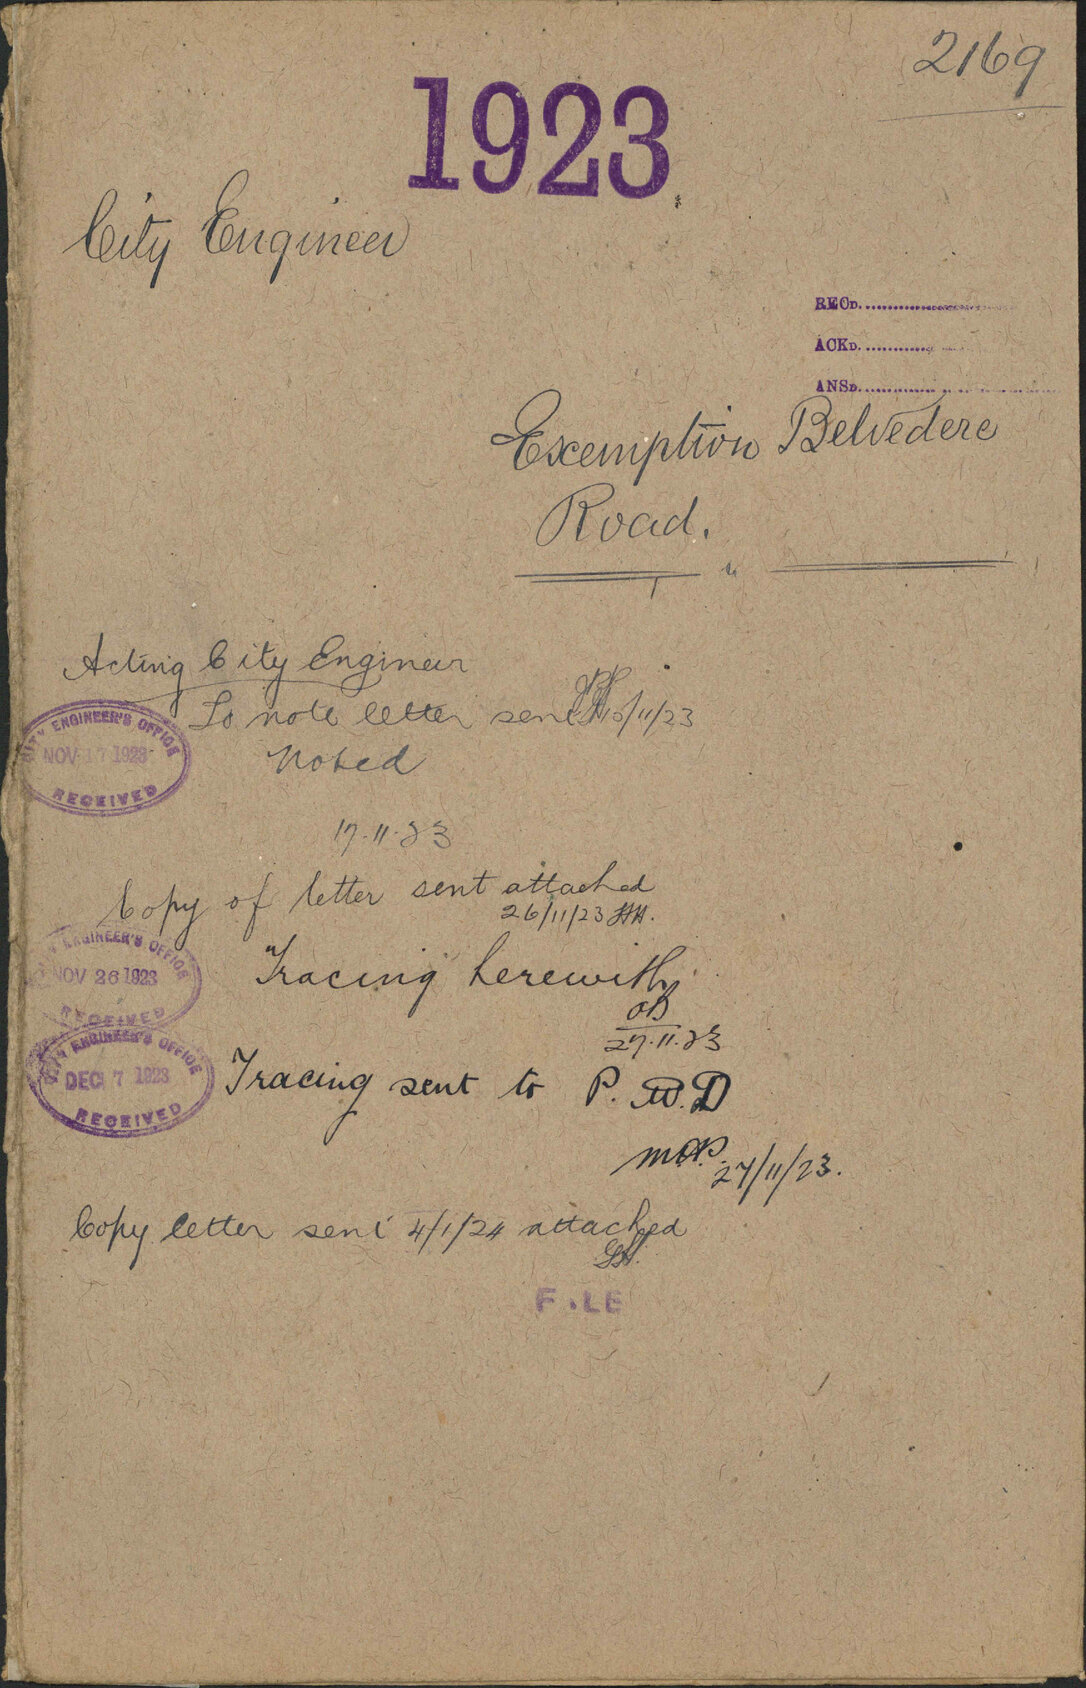 2169
1923
City Engineer
RECD.
ACKD.
ANSD.
Exemption Belvedere
Road.
Acting City Engineer
To note letter sent 15/11/23
Noted
17.11.23
CITY ENGINEER'S OFFICE
NOV 17 1923
RECEIVED
Copy of letter sent attached
26/11/23
ENGINEER'S OFFICE
NOV 26 1923
RECEIVED
Tracing herewith
OB
27.11.23
CITY ENGINEER'S OFFICE
DEC 7 1923
RECEIVED
Tracing sent to P. W. D
27/11/23.
Copy letter sent 4/1/24 attached
F.LE